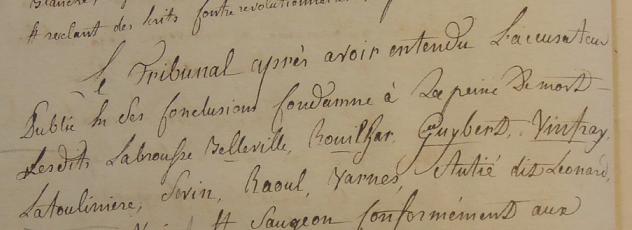 recelant des Ecrits Contrerevolutionnaires
Le Tribunal après avoir entendu L'accusateur
Public En ses Conclusions Condamne à La peine De mort
Lesdits Labrousse Belleville, Rouilhac, Guybert, Vinfray,
Latouliniere, Sevin, Raoul, Varnes, Autié dit Leonard,
Et Saugeon Conformément aux